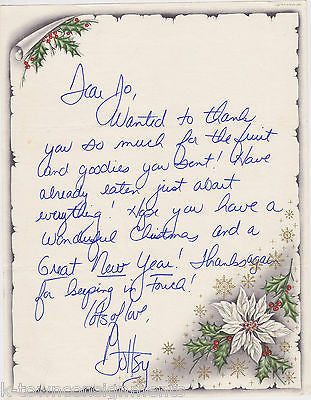 Dear Jo,
Wanted to thank
you so much for the fruit
and goodies you sent! Have
already eaten just about
everything! Hope you have a
Wonderful Christmas and a
Great New Year! Thanks again
for keeping in touch!
Lots of love,
k-townconsignments